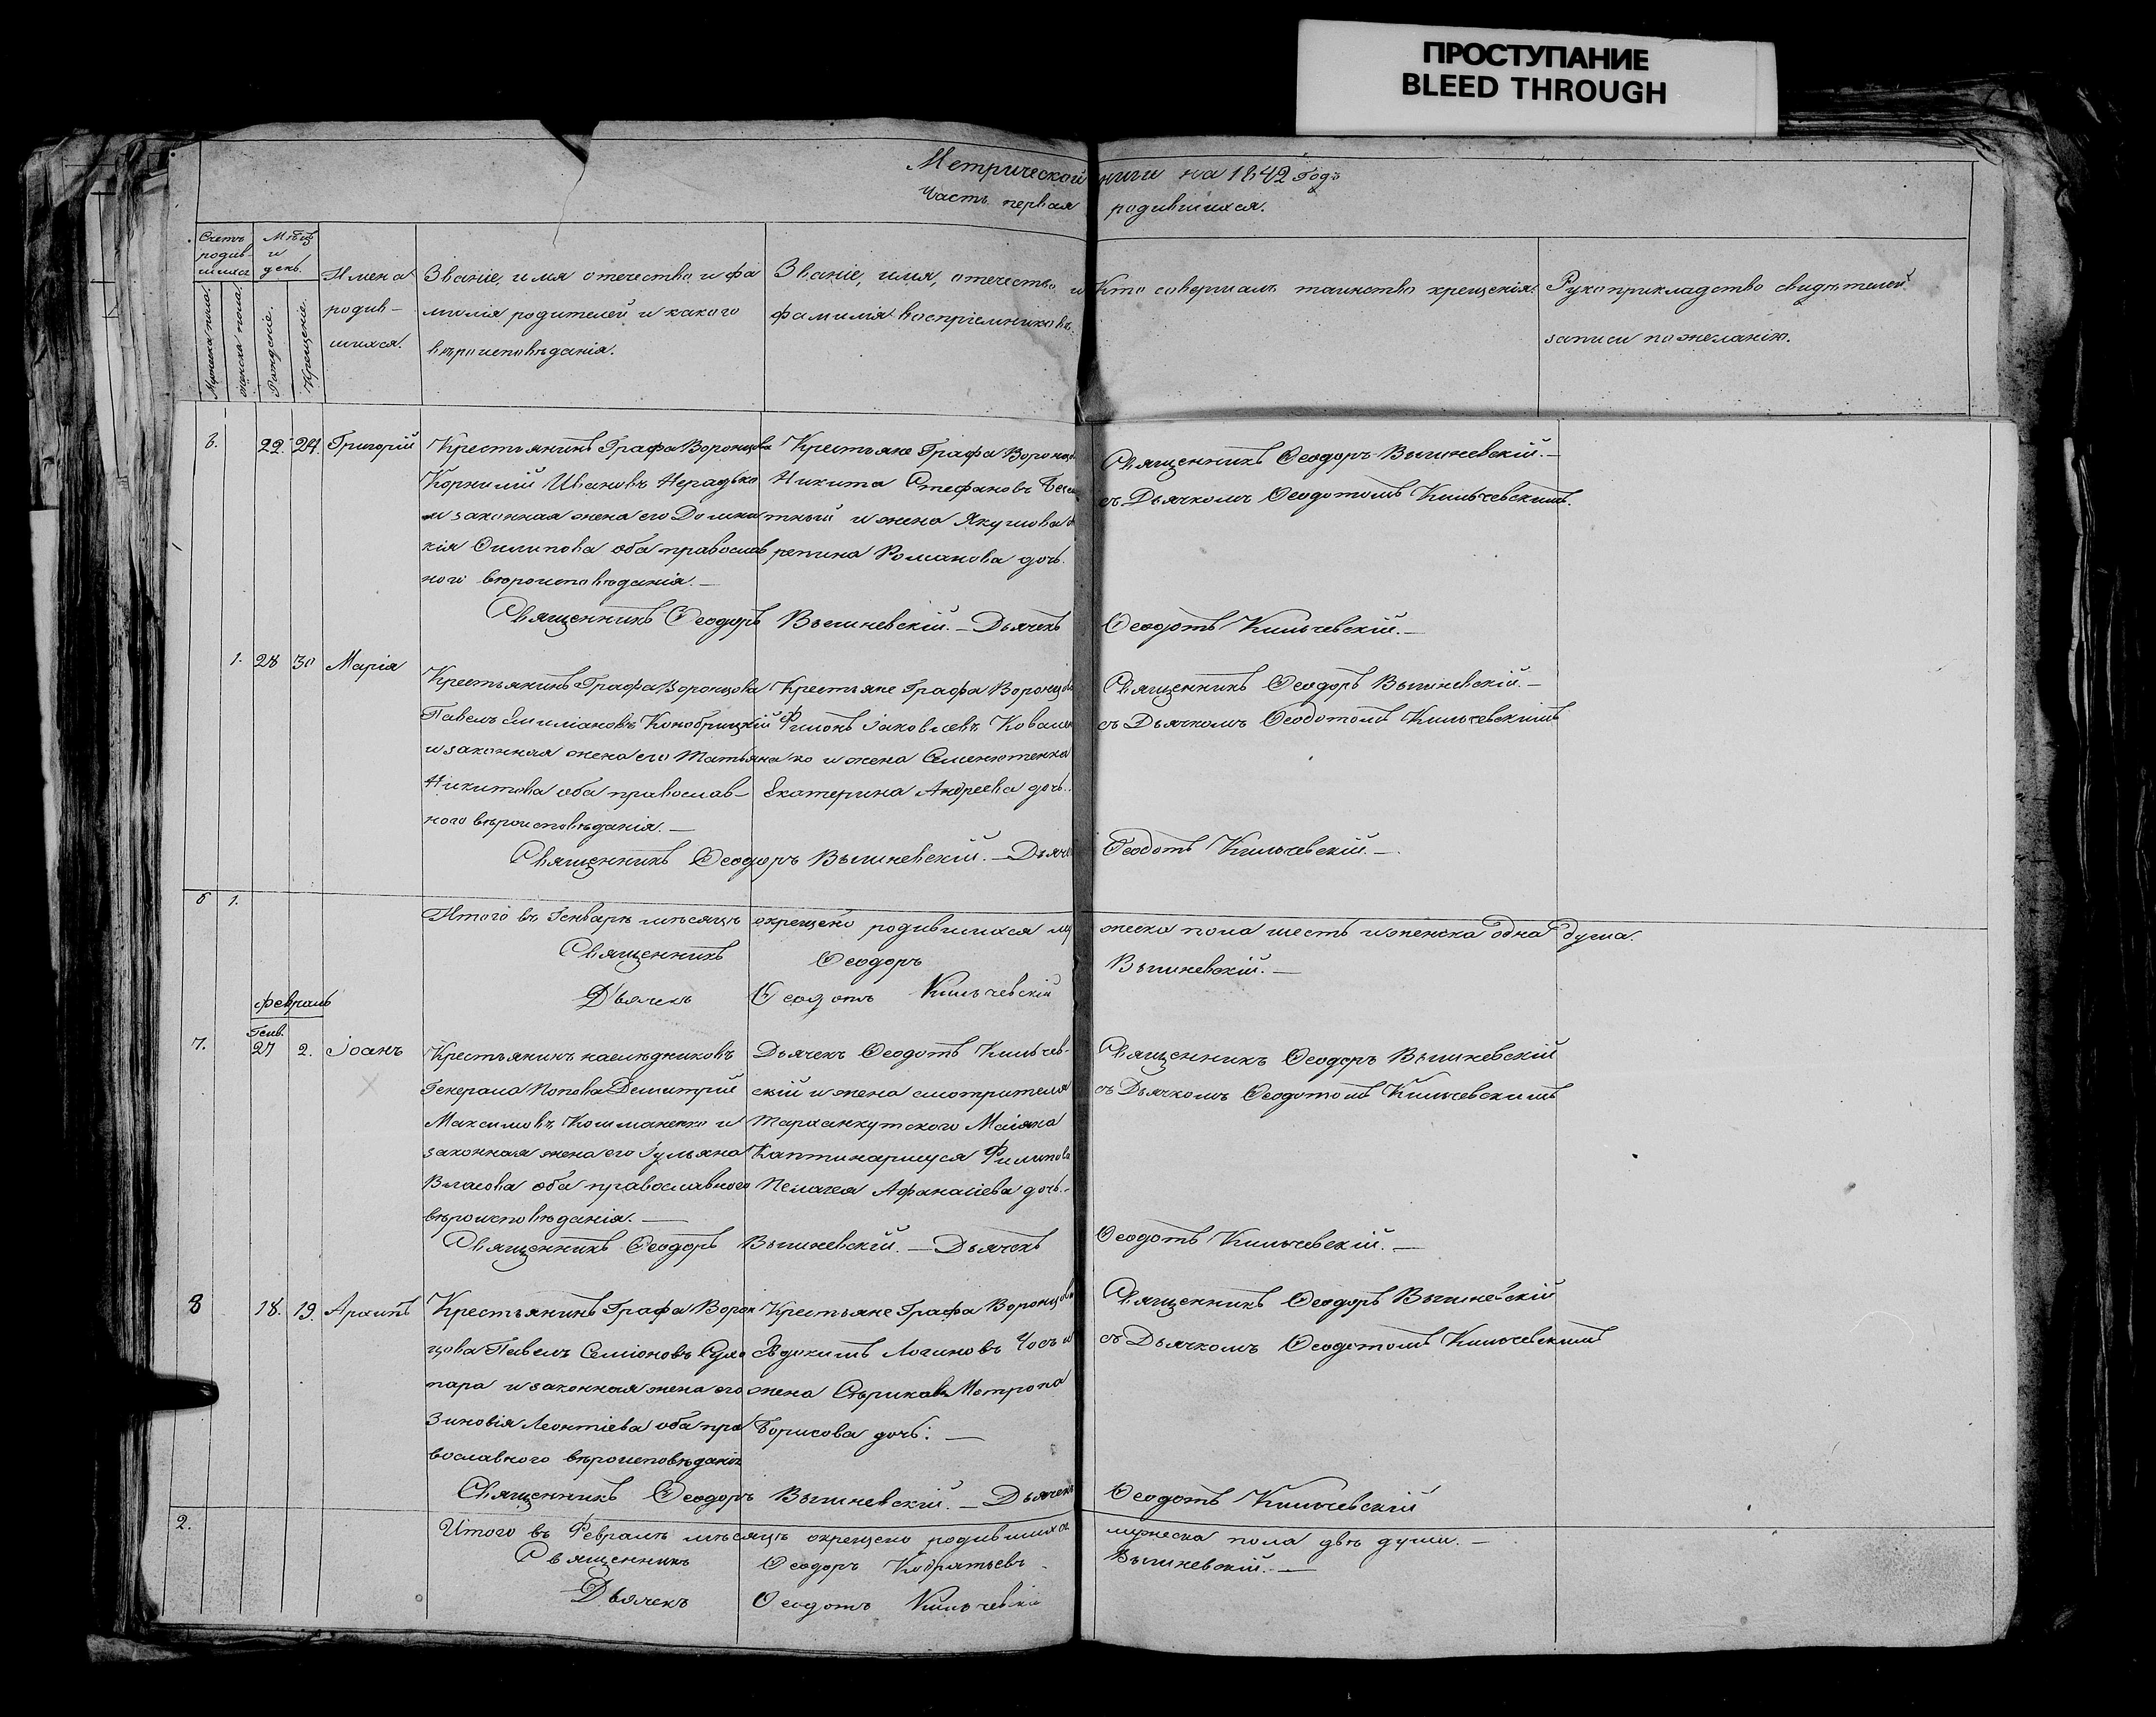 ПРОСТУПАНИЕ
BLEED THROUGH
Метрической книги на 1842 Годъ
Часть первая родившихся.
Счетъ родившихся
Мужска пола.
Женска пола.
Мѣсц и день.
Рожденіе.
Крещеніе.
Имена родив-
шихся.
Званіе, имя отечество и фа
милія родителей и какого
вѣроисповѣданія.
Званіе, имя, отечество и
фамилія воспріемниковъ.
Кто совершалъ таинство крещенія.
Рукоприкладство свидѣтелей
записи по желанію.
6. 22. 24. Григорій
Крестьянинъ Графа Воронцова
Корнилій Ивановъ Нерадько
и законная жена его Домни
кія Филипова оба православ
ного вѣроисповѣданія. —
Крестьяне Графа Воронцо
Никита Стефановъ
тный и жена Якушова
репина Романова дочь.
Священникъ Ѳеодоръ Вышневскій. —
съ Дьячкомъ Ѳеодотомъ Кильчевскимъ.
Священникъ Ѳеодоръ Вышневскій. — Дьячекъ Ѳеодотъ Кильчевскій. —
1. 28 30 Марія
Крестьянинъ Графа Воронцова
Павелъ Емиліановъ Конобрицкій
и законная жена его Татьяна
Никитова оба православ-
ного вѣроисповѣданія. —
Крестьяне Графа Воронцова
Филонъ Іаковлевъ Ковален
ко и жена Семенютенка
Екатерина Андреева дочь.
Священникъ Ѳеодоръ Вышневскій. —
съ Дьячкомъ Ѳеодотомъ Кильчевскимъ
Священникъ Ѳеодоръ Вышневскій. — Дьяче Ѳеодотъ Кильчевскій. —
6 1.
Итого въ Генварѣ мѣсяцѣ окрещено родившихся му жеска пола шесть и женска одна душа.
Священникъ Ѳеодоръ Вышневскій. —
Дьячекъ Ѳеодотъ Кильчевскій
Февраль
Генв.
7. 27 2. Іоанъ
Крестьянинъ наслѣдниковъ
Генерала Попова Демитрій
Максимовъ Кошманенко и
законная жена его Іульяна
Власова оба православного
вѣроисповѣданія. —
Дьячекъ Ѳеодотъ Кильчев-
скій и жена смотрителя
Тарханкутского Маіяка
Филипова
Пелагея Афанасіева дочь.
Священникъ Ѳеодоръ Вышневскій
съ Дьячкомъ Ѳеодотомъ Кильчевскимъ
Священникъ Ѳеодоръ Вышневскій. — Дьячекъ Ѳеодотъ Кильчевскій. —
8 18. 19. Архипъ
Крестьянинъ Графа Ворон
цова Павелъ Семіоновъ
пара и законная жена его
Зиновія Леонтіева оба пра
вославного вѣроисповѣданія
Крестьяне Графа Воронцова
Логиновъ Чосъ и
жена Сѣрикова Мотрона
Борисова дочь. —
Священникъ Ѳеодоръ Вышневскій
съ Дьячкомъ Ѳеодотомъ Кильчевскимъ
Священникъ Ѳеодоръ Вышневскій. — Дьячекъ Ѳеодотъ Кильчевскій
2.
Итого въ Февралѣ мѣсяцѣ окрещено родившихся мужеска пола двѣ души. —
Священникъ Ѳеодоръ Кодратьевъ Вышневскій. —
Дьячекъ Ѳеодотъ Кильчевскій